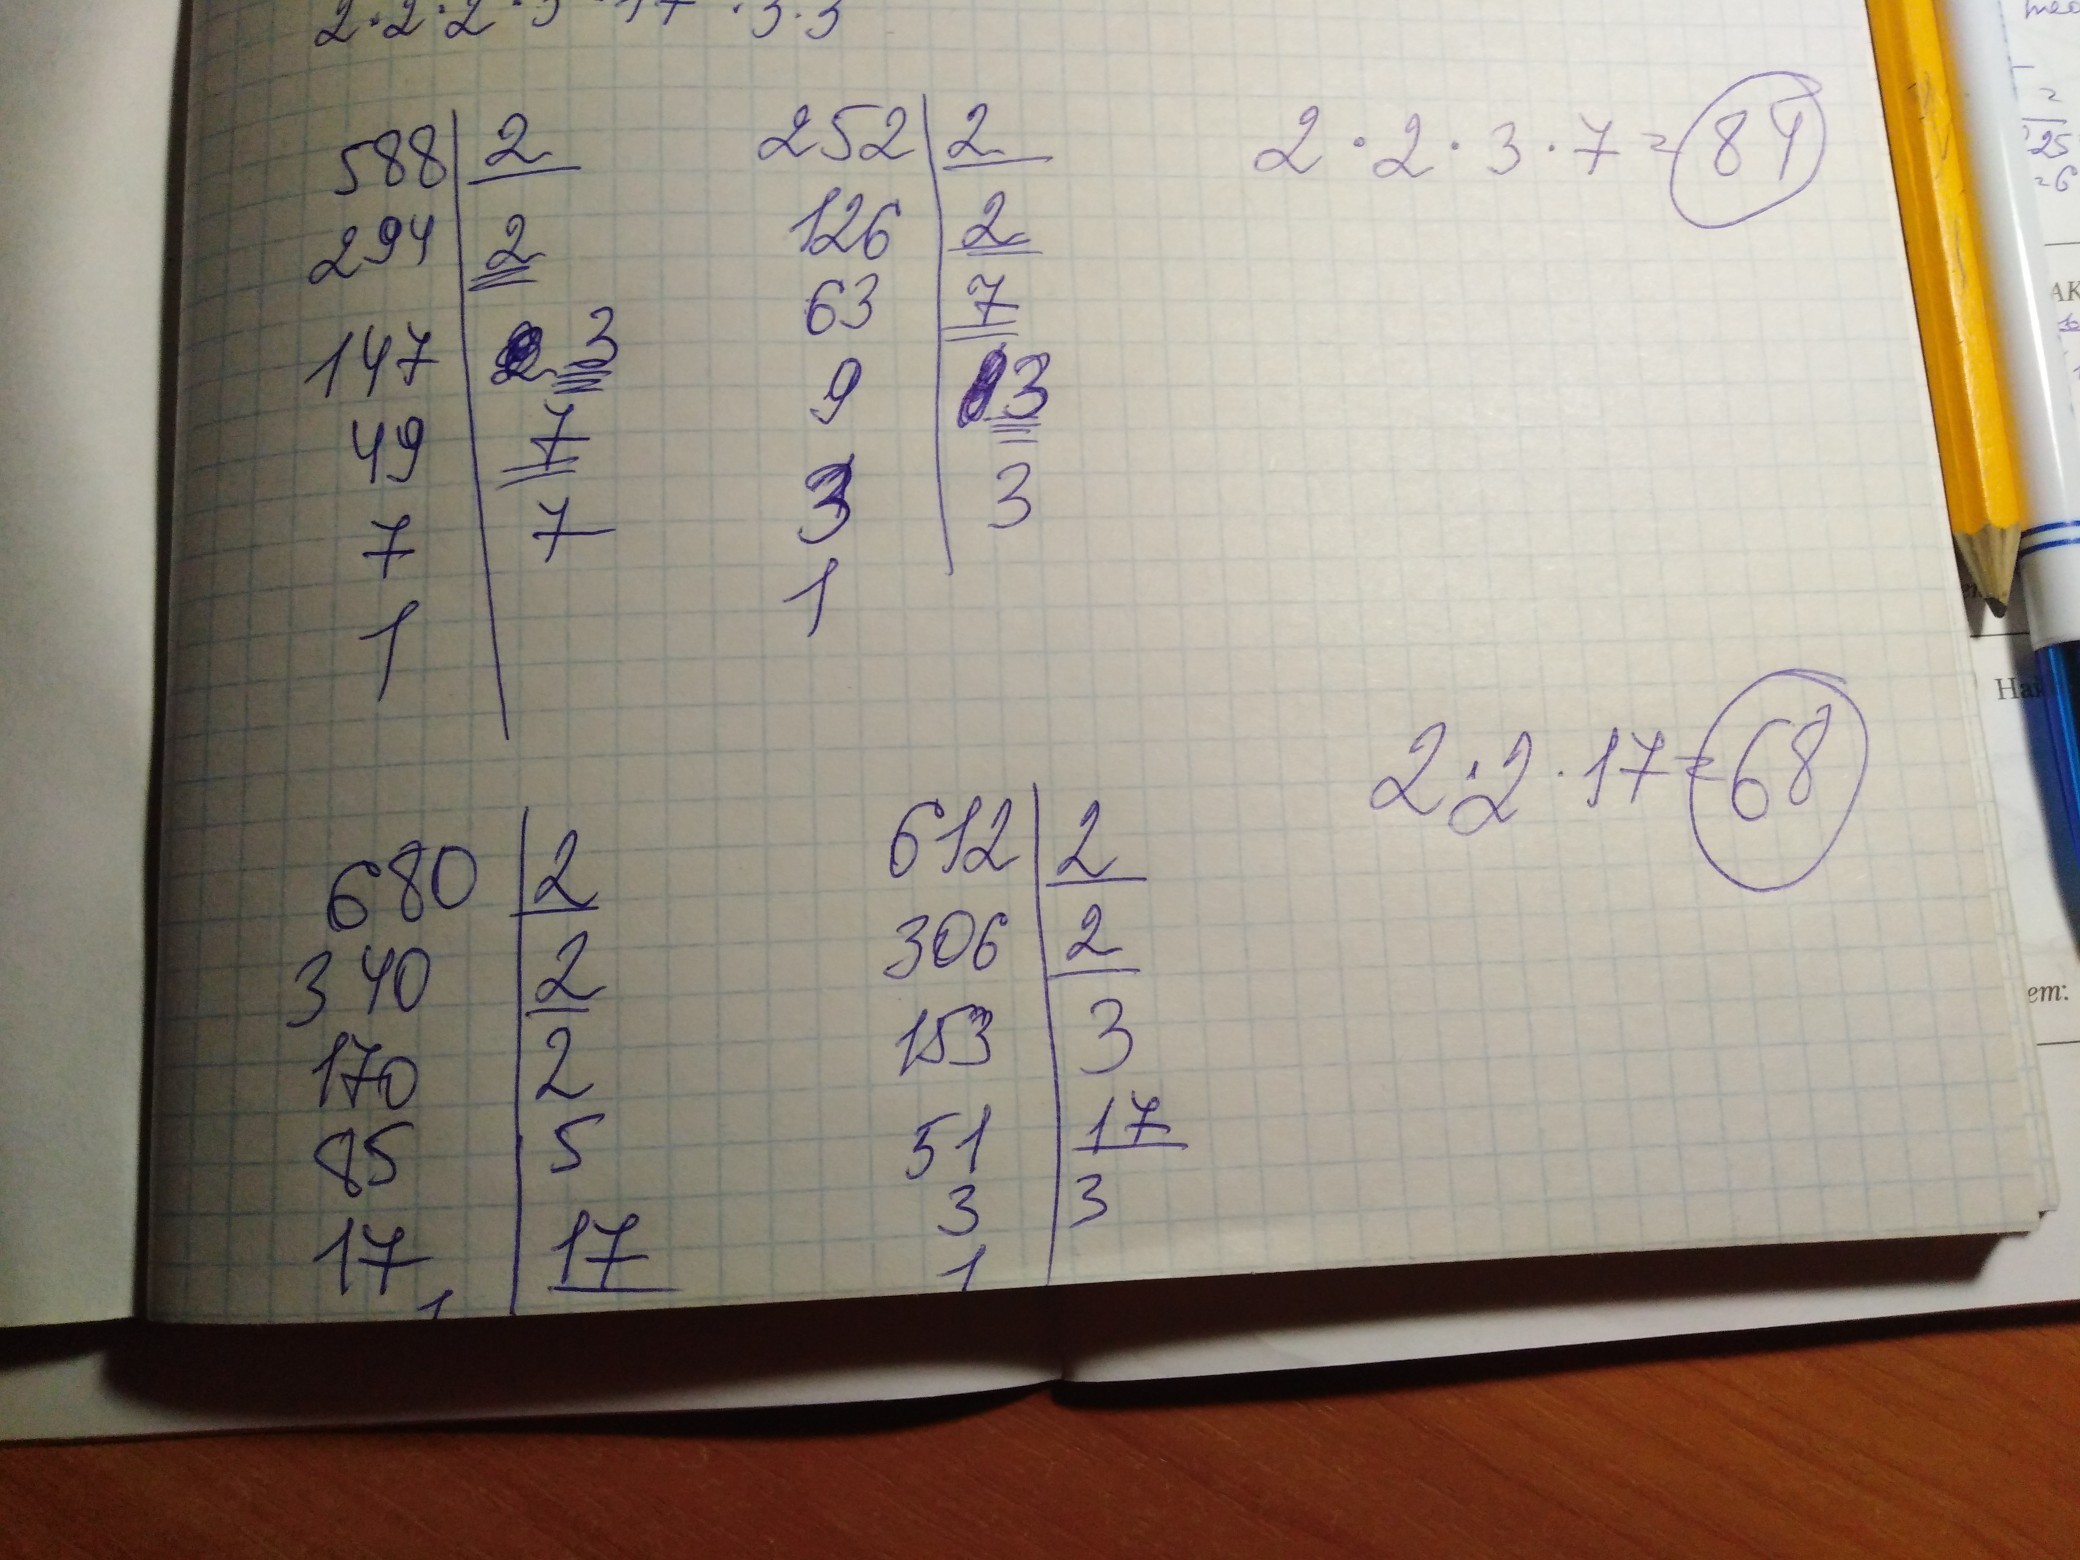 2·2·2·5·17·3·3
588 | 2
294 | 2
147 | 3
49 | 7
7 | 7
1
252 | 2
126 | 2
63 | 7
9 | 3
3 | 3
1
2·2·3·7=84
680 | 2
340 | 2
170 | 2
85 | 5
17 | 17
1
612 | 2
306 | 2
153 | 3
51 | 17
3 | 3
1
2·2·17=68
25
=6
АК
Най
ет: